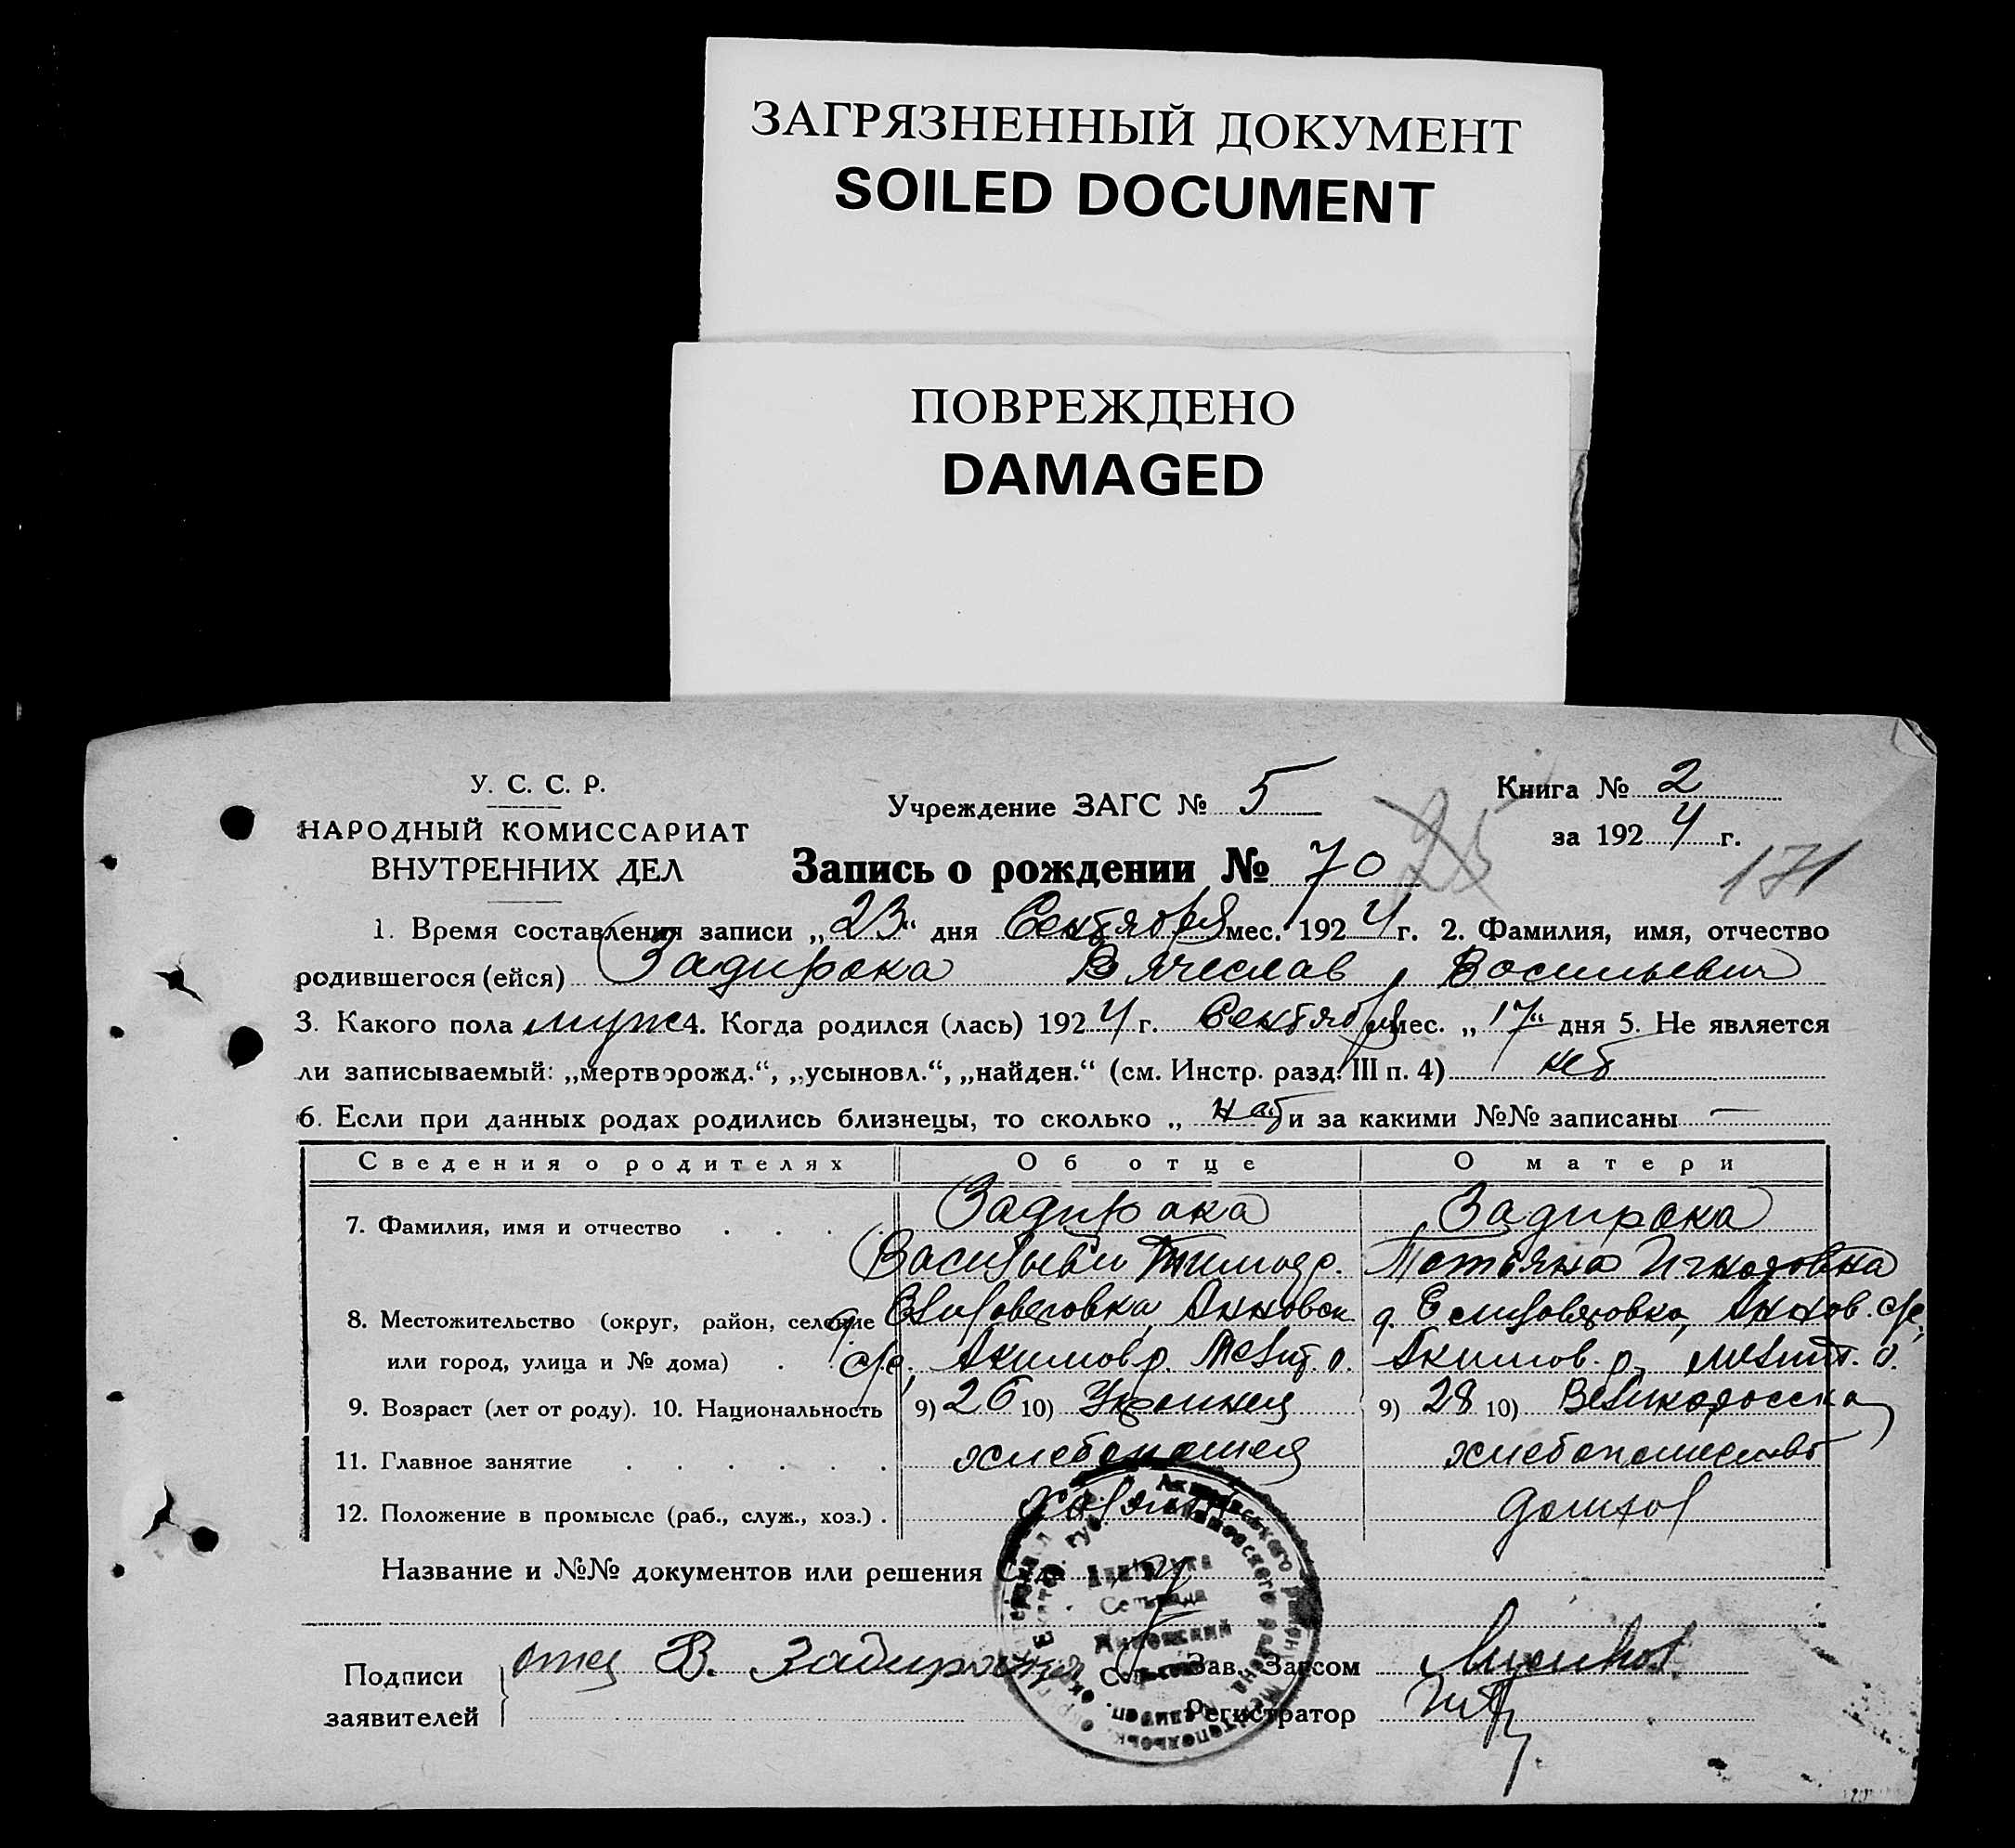 ЗАГРЯЗНЕННЫЙ ДОКУМЕНТ
SOILED DOCUMENT
ПОВРЕЖДЕНО
DAMAGED
У. С. С. Р.
НАРОДНЫЙ КОМИССАРИАТ
ВНУТРЕННИХ ДЕЛ
Учреждение ЗАГС № 5
Книга № 2
за 1924 г.
Запись о рождении № 70
25
171
1. Время составления записи „23“ дня Сентября мес. 1924 г. 2. Фамилия, имя, отчество
родившегося (ейся) Задирака Вячеслав Васильевич
3. Какого пола муж 4. Когда родился (лась) 1924 г. Сентября мес. „17“ дня 5. Не является
ли записываемый: „мертворожд.“, „усыновл.“, „найден.“ (см. Инстр. разд. III п. 4) нет
6. Если при данных родах родились близнецы, то сколько „ нет и за какими №№ записаны —
Сведения о родителях Об отце О матери
7. Фамилия, имя и отчество Задирака Задирака
Татьяна
8. Местожительство (округ, район, селение
или город, улица и № дома) с/с, Акимов р. Мелит. о. Акимов. р. Мелит. о.
9. Возраст (лет от роду). 10. Национальность 9) 26 10) Украинец 9) 28 10) Великоросска
11. Главное занятие хлебопашец хлебопашество
12. Положение в промысле (раб., служ., хоз.) . хозяин
Название и №№ документов или решения Суда
Подписи
заявителей
отец В. Задирака
Зав. Загсом
Регистратор